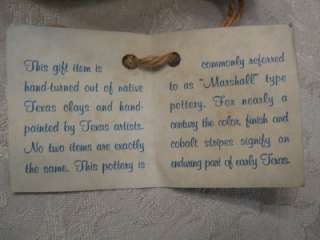 This gift item is
hand-turned out of native
Texas clays and hand-
painted by Texas artists.
No two items are exactly
the same. This pottery is
commonly referred
to as "Marshall" type
pottery. For nearly a
century the color, finish and
cobalt stripes signify an
enduring part of early Texas.